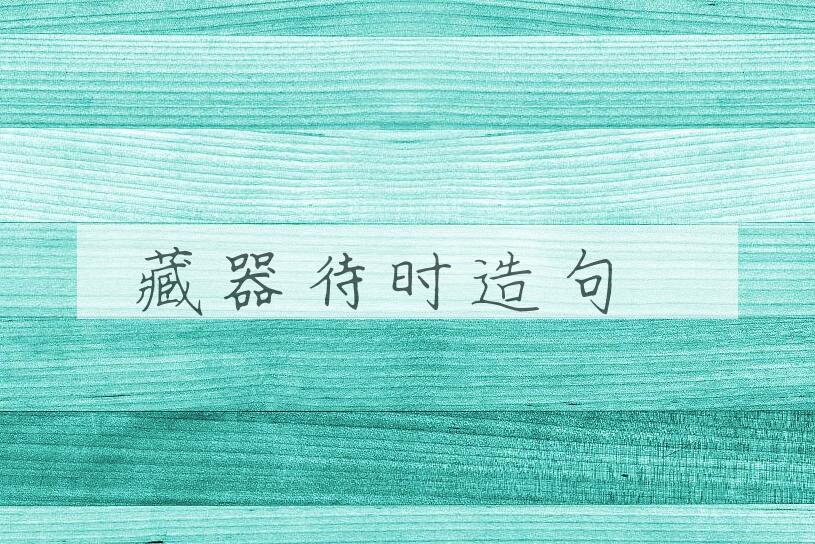 藏器待时造句